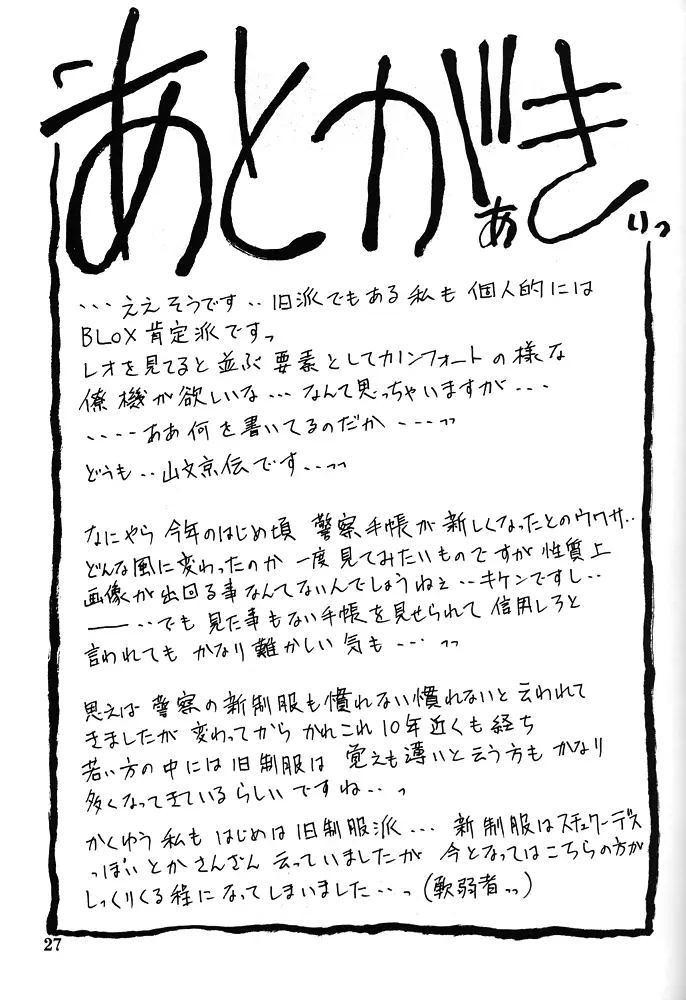 あとがき
あ
いっ
・・・ええそうです・・旧派でもある私も 個人的には
BLOX肯定派ですっ
レオを見てると並ぶ要素としてカノンフォートの様な
僚機が欲しいな・・・なんて思っちゃいますが・・・
・・・・・ああ何を書いてるのだか ・・・っっ
どうも・・山文京伝です・・・っっ
なにやら今年のはじめ頃 警察手帳が新しくなったとのウワサ・・
どんな風に変わったのか 一度見てみたいものですが性質上
画像が出回る事なんてないんでしょうねぇ・・キケンですし・・
――・・でも見た事もない手帳を見せられて信用しろと
言われても かなり難かしい気も・・・ っっ
思えば 警察の新制服も慣れない慣れないと云われて
きましたが変わってから かれこれ10年近くも経ち
若い方の中には旧制服は 覚えも薄いと云う方も かなり
多くなってきているらしいですね・・っ
かくゆう私も はじめは旧制服派・・・ 新制服はスチュワーデス
っぽいとかさんざん云っていましたが 今となってはこちらの方が
しっくりくる程になってしまいました・・・っ(軟弱者っっ)
27